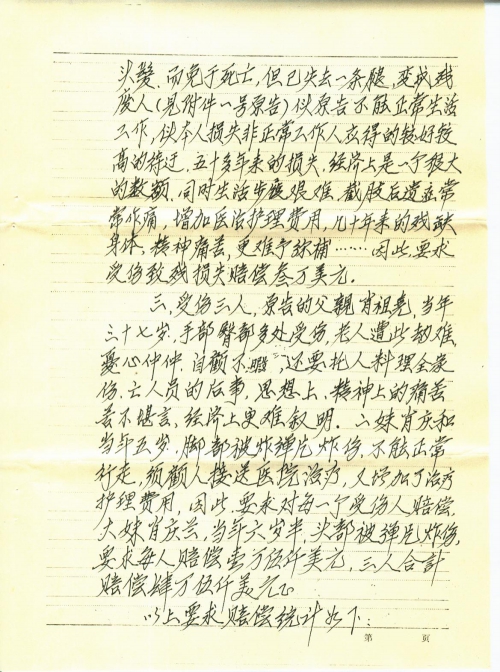 头发,而免于死亡,但已失去一条腿,变成残
废人(见附件一号原告)似原告不能正常生活
工作,似本人损失非正常工作人应得的较好较
高的待迂,五十多年来的损失,经济上是一个很大
的数额,同时生活步履艰难,截肢后遗症常
常作痛,增加医治护理费用,几十年来的残缺
身体,精神痛苦,更难予弥补……因此,要求
受伤致残损失赔偿叁万美元.
三、受伤三人,原告的父亲肖祖尧,当年
三十七岁,手部臀部多处受伤,老人遭此劫难,
忧心忡忡,自顾不暇,还要托人料理全家
伤、亡人员的后事,思想上、精神上的痛苦
苦不堪言,经济上更难叙明.二妹肖庆和
当年五岁,脚部被炸弹片炸伤,不能正常
行走,须顾人接送医院治疗,又增加了治疗
护理费用,因此,要求对每一个受伤人赔偿,
大妹肖庆兰,当年六岁半,头部被弹片炸伤,
要求每人赔偿壹万伍仟美元,三人合計
赔偿肆万伍仟美元。
以上要求赔偿统计如下:
第 页